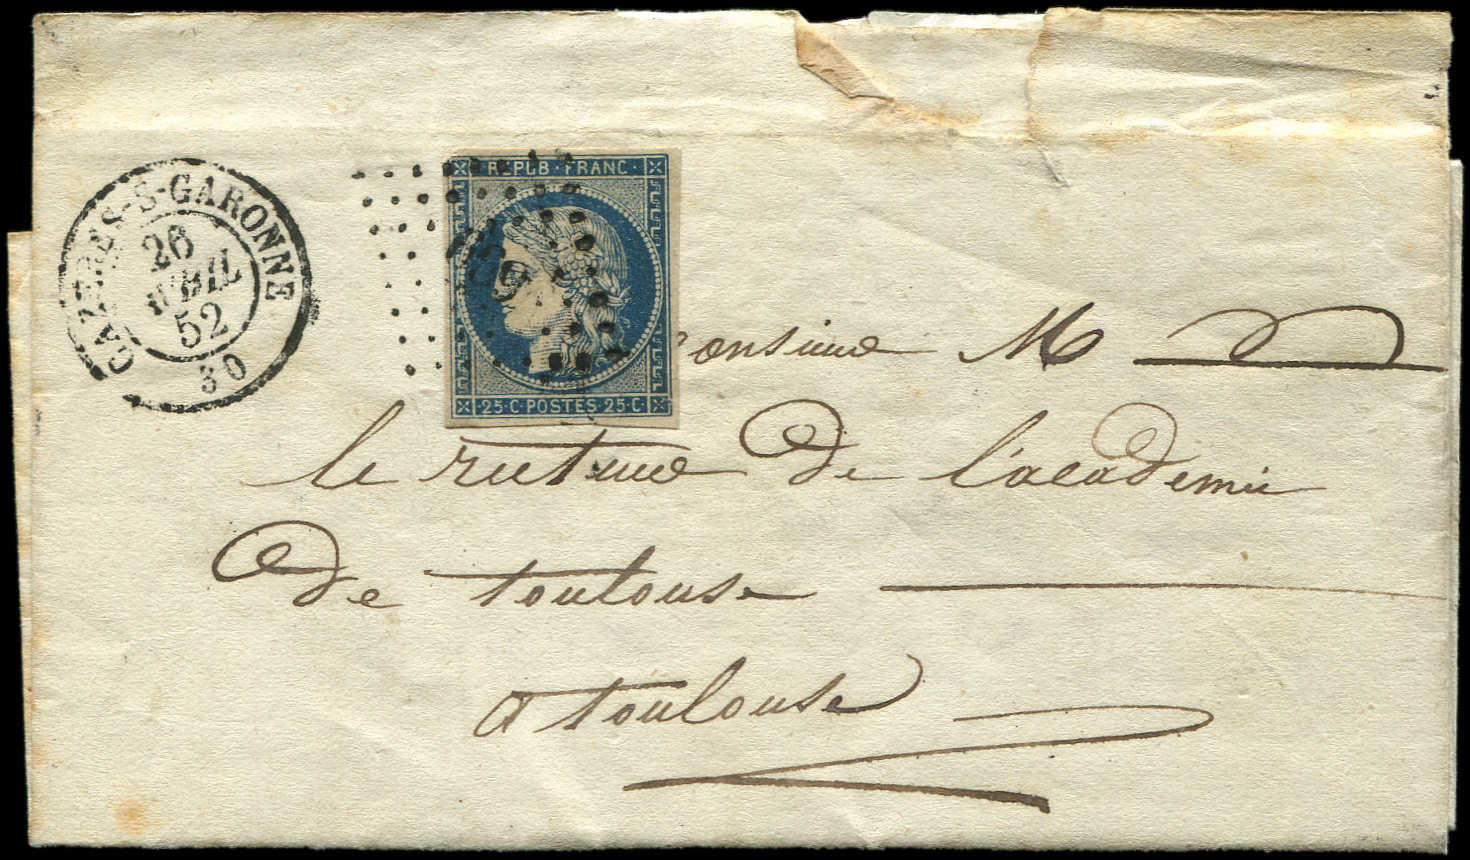 CAZERES-S-GARONNE
26
AVRIL
52
30
REPUB·FRANC·
25·C·POSTES·25·C
onsieur M
le recteur de l'academie
de toulouse
a toulouse